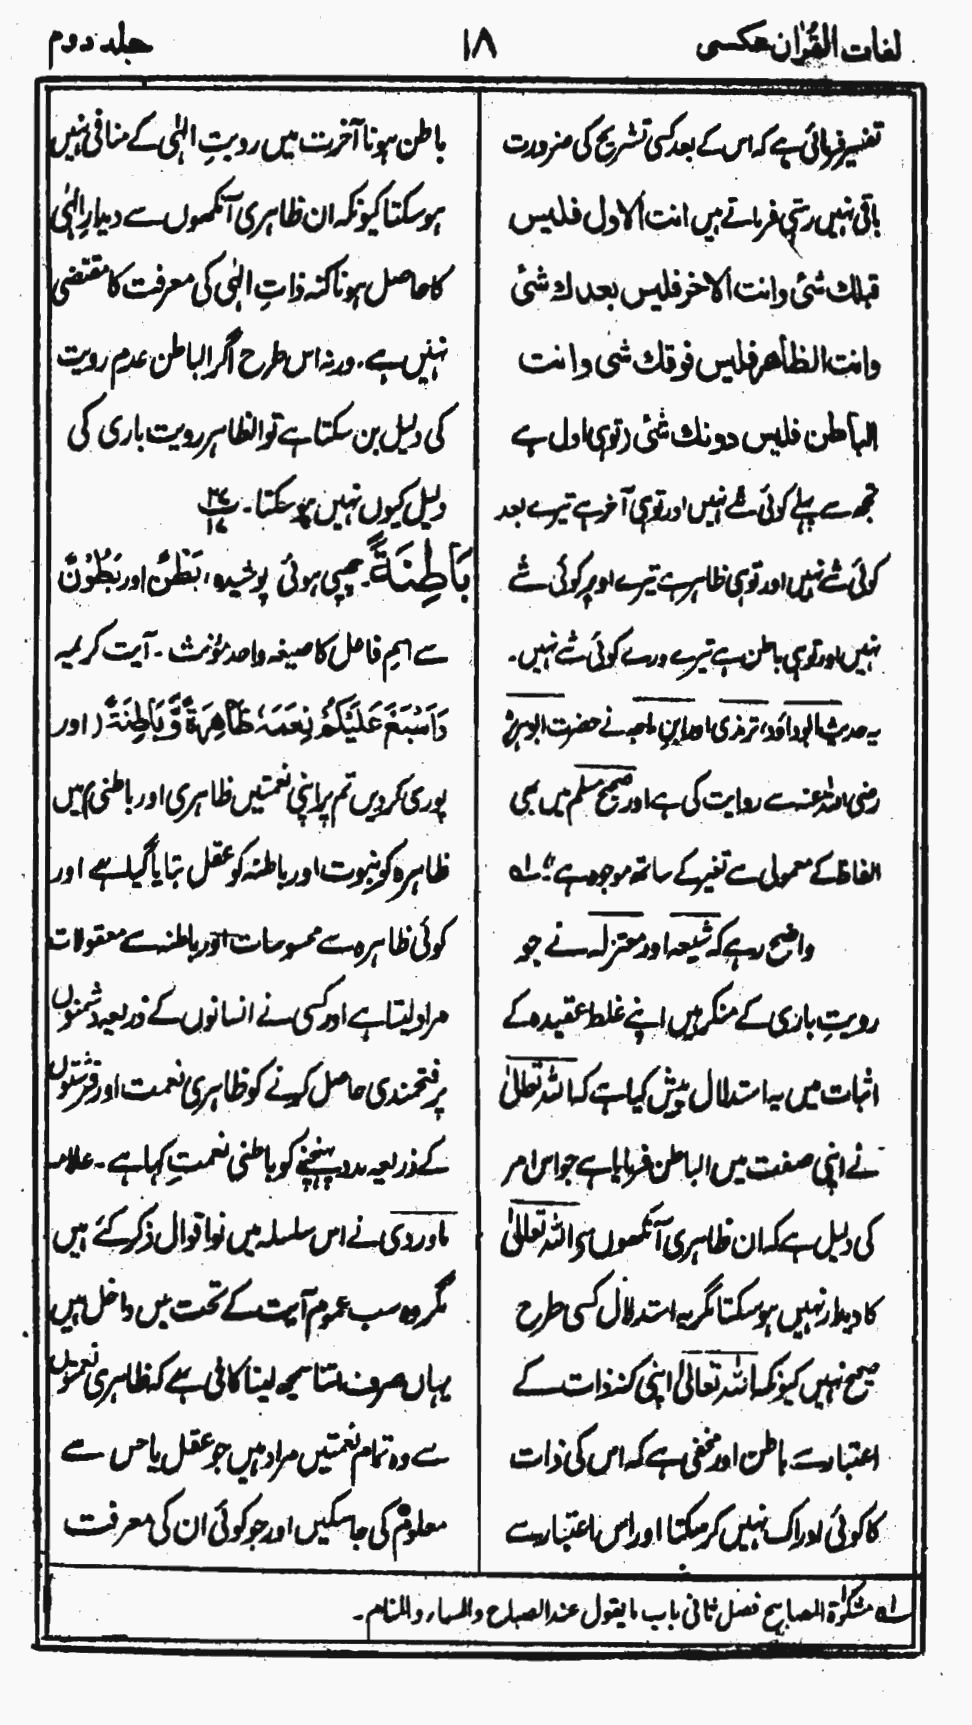 لغات القرآن عکسی
۱۸
جلد دوم
تفسیر فرمائی ہے کہ اس کے بعد کسی تشریح کی ضرورت
باقی نہیں رہتی فرماتے ہیں انت الاول فلیس
قبلك شئی وانت الاخر فلیس بعدك شئی
وانت الظاهر فلیس فوقك شی وانت
الباطن فلیس دونك شئی (توہی اول ہے
تجھ سے پہلے کوئی شے نہیں اور توہی آخر ہے تیرے بعد
کوئی شے نہیں اور توہی ظاہر ہے تیرے اوپر کوئی شے
نہیں اور توہی باطن ہے تیرے ورے کوئی شے نہیں۔
یہ حدیث ابوداؤد، ترمذی اور ابن ماجہ نے حضرت ابوہریرہ
رضی اللہ عنہ سے روایت کی ہے اور صحیح مسلم میں بھی
الفاظ کے معمولی سے تغیر کے ساتھ موجود ہے "؛ لہ
واضح رہے کہ شیعہ اور معتزلہ نے جو
رویتِ باری کے منکر ہیں اپنے غلط عقیدہ کے
اثبات میں یہ استدلال پیش کیا ہے کہ اللہ تعالیٰ
نے اپنی صفت میں الباطن فرمایا ہے جو اس امر
کی دلیل ہے کہ ان ظاہری آنکھوں سے اللہ تعالیٰ
کا دیدار نہیں ہوسکتا مگر یہ استدلال کسی طرح
صحیح نہیں کیونکہ اللہ تعالیٰ اپنی کنہ ذات کے
اعتبار سے باطن اور مخفی ہے کہ اس کی ذات
کا کوئی ادراک نہیں کرسکتا اور اس اعتبار سے
باطن ہونا آخرت میں رویتِ الٰہی کے منافی نہیں
ہوسکتا کیونکہ ان ظاہری آنکھوں سے دیدارِ الٰہی
کا حاصل ہونا کنہ ذاتِ الٰہی کی معرفت کا مقتضی
نہیں ہے۔ ورنہ اس طرح اگر الباطن عدم رویت
کی دلیل بن سکتا ہے تو الظاہر رویت باری کی
دلیل کیوں نہیں ہوسکتا۔ ۲۷ ۱۷
بَاطِنَةً۔ چھپی ہوئی پوشیدہ، بَطْنٌ اور بُطُوْنٌ
سے اسم فاعل کا صیغہ واحد مؤنث۔ آیت کریمہ
وَاَسْبَغَ عَلَيْكُمْ نِعَمَهٗ ظَاهِرَةً وَّبَاطِنَةً (اور
پوری کردیں تم پر اپنی نعمتیں ظاہری اور باطنی) میں
ظاہرہ کو نبوت اور باطنہ کو عقل بتایا گیا ہے اور
کوئی ظاہرہ سے محسوسات اور باطنہ سے معقولات
مراد لیتا ہے اور کسی نے انسانوں کے ذریعہ دشمنوں
پر فتحمندی حاصل کرنے کو ظاہری نعمت اور فرشتوں
کے ذریعہ مدد پہنچنے کو باطنی نعمتِ کہا ہے۔ علامہ
ماوردی نے اس سلسلہ میں نو اقوال ذکر کئے ہیں
مگر وہ سب عموم آیت کے تحت میں داخل ہیں
یہاں صرف اتنا سمجھ لینا کافی ہے کہ ظاہری نعمتوں
سے وہ تمام نعمتیں مراد ہیں جو عقل یا حس سے
معلوم کی جاسکیں اور جو کوئی ان کی معرفت
لہ مشکوٰۃ المصابیح فصل ثانی باب مایقول عند الصباح والمساء والمنام۔